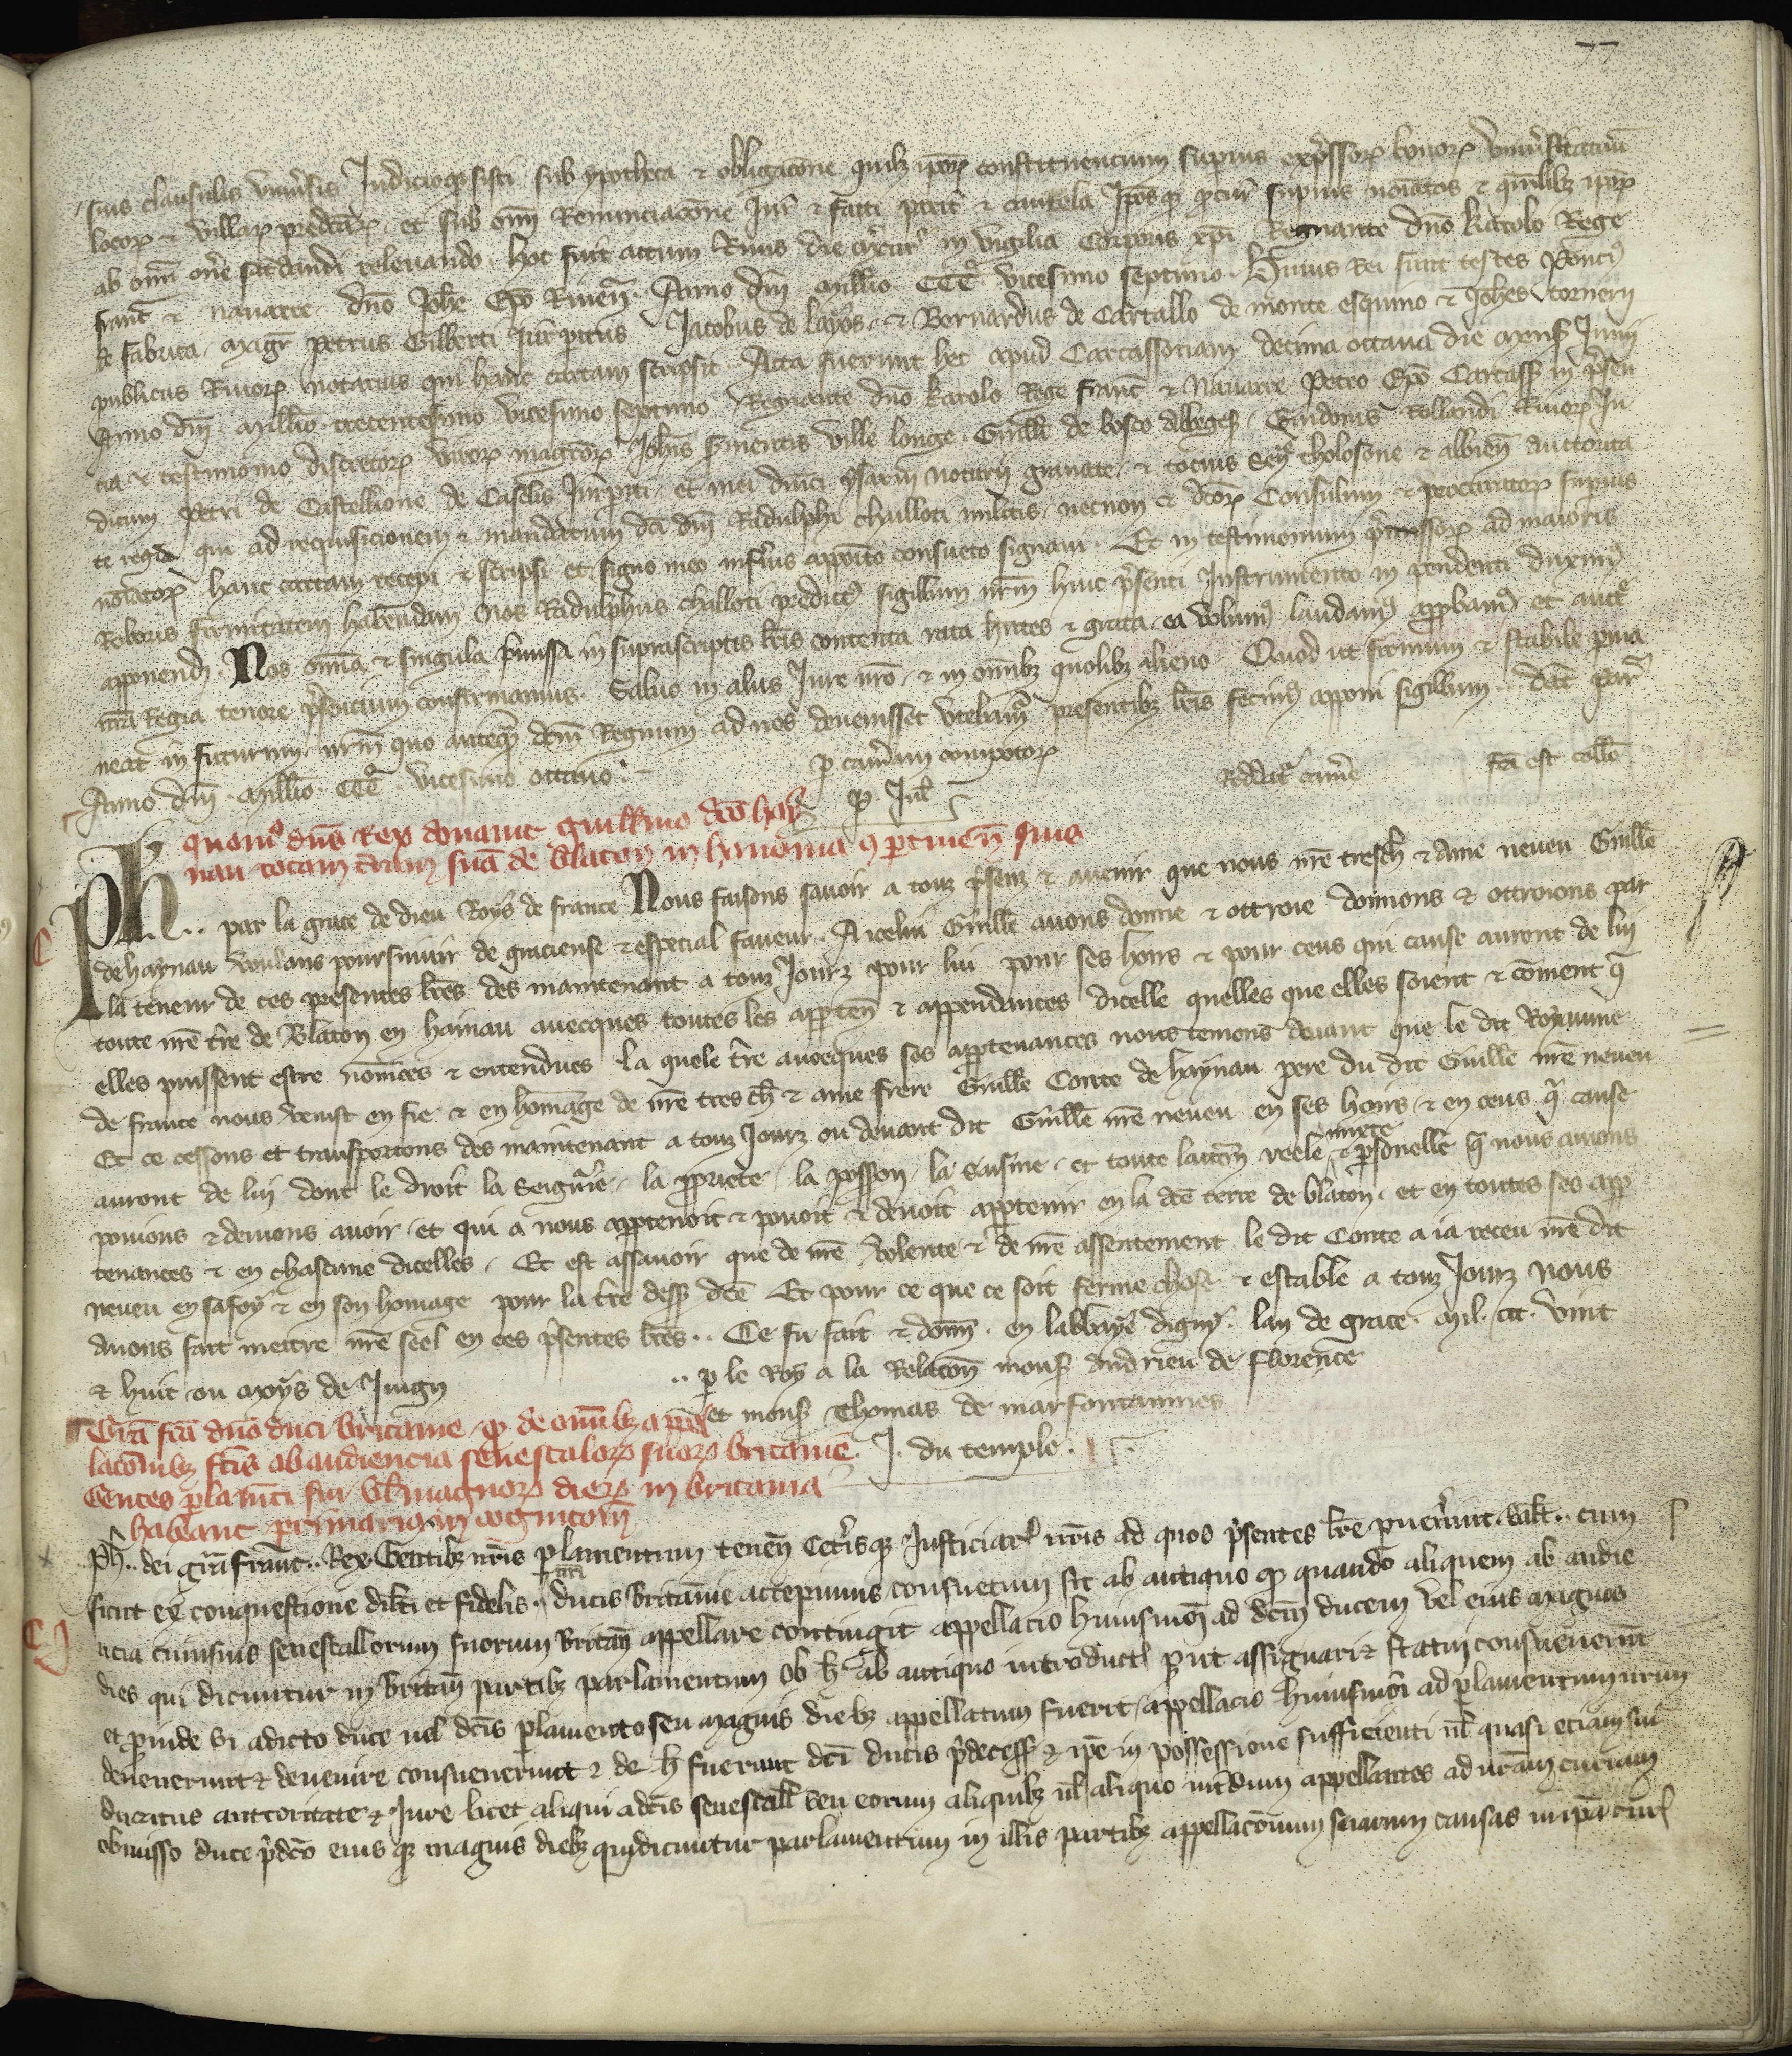 suis clausulis universis Judicioqȝ sisti sub ypotheca & obligacōne quilȝ ipōꝝ constituencium superius expressoꝝ bonoꝝ universitatum
locoꝝ & villaꝝ predcāꝝ, et sub omī Renunciacōne Jur̄ & facti pariť & cautela Ipōsqȝ pcur̄ superius noīatos & quēlibȝ ipōꝝ
ab omī onēe satisdandi relevando. Hoc fuit actum Rivis die in vigilia Corporis xp̄i Regnante dn̄o karolo Rege
franc̄ & navarre dn̄o Johē Ep̄o Riven̄. Anno dn̄i Mill̄io CCC̊. vicesimo septimo. Huius Rei sunt testes
de fabrica, Magr̄ Petrus Gilberti Jur̄pitus Jacobus de & Bernardus de Cartallo de monte esquivo & Joh̄es tornerij
publicus Rivoꝝ notarius qui hanc cartam scripsit. Acta fuerunt hec apud Carcassonam decima octava die mens̄ Junij
Anno dn̄i Mill̄io trecentesimo vicesimo septimo Regnante dn̄o karolo Rege franc̄ & Navarre Petro Ep̄o Carcass̄ in p̄sen
cia & testimonio discretoꝝ viroꝝ magr̄oꝝ Joh̄is ville longe. Guill̄i de bosco Guidonis Rollandi Rivoꝝ Ju
dicum Petri de Castellione de Jur̄piti, et mei dn̄ici notarij & tocius Seň tholosone & albien̄ auctorita
te regia qui ad requisicionem & mandatum dc̄i dn̄i Radulphi challoti militis, necnon & dc̄oꝝ Consulum & procuratoꝝ superius
noīatoꝝ hanc cartam recepi & scripsi et signo meo inferius appoīto consueto signavi. Et in testimonium p̄missoꝝ ad maioris
Roboris firmitatem habendam Nos Radulphus challoti predictꝰ sigillum nr̄m huic p̄senti Instrumento in pendenti duximꝰ
apponendū. Nos omīa & singula p̄missa in suprascriptis lr̄is contenta rata hn̄tes & grata, ea volumꝰ laudamꝰ app̄bamꝰ et auctē
nr̄a Regia tenore p̄sencium confirmamus. Salvo in aliis Jure nr̄o, & in omībȝ quolibȝ alieno. Quod ut firmum & stabile pma
neat in futurum, nr̄m quo anteqȝ dc̄m Regnum ad nos devenisset utebamꝰ presentibȝ lr̄is fecimꝰ apponi sigillum... dat̄ par̄
Anno dn̄i Mill̄io CCC̊ vicesimo octavo.
p cam̄am compotoꝝ
P. Jul̄
Reddit̄ᵉ cam̄e
fc̄a est coll̄o
Quomͦ dn̄s Rex donavit Guill̄mo dc̄o hay
nau totam t̄ram suā de Blaton in hanonia 9 ptinen̄ suis
Ph̄.. par la grace de dieu Roys de france Nous faisons savoir a touz p̄senz & avenir que nous nr̄e tresch̄ & ame neveu Guill̄e
de haynau voulans poursuivir de gracieuse & especial faveur. A icelui Guill̄e avons donne & ottroie donnons & ottroions par
la teneur de ces presentes lr̄es des maintenant a touz Jourz pour lui pour ses hoirs & pour ceus qui cause auront de lui
toute nr̄e tr̄e de Blaton en hainau avecques toutes les apptēn & appendances dicelle quelles que elles soient & cōment q̄
elles puissent estre nōmees & entendues la quele tr̄e avecques ses apptenances nous teniens devant que le dit Royaume
de france nous venist en fie & en homage de nr̄e tres ch̄ & ame frere Guill̄e Conte de haynau pere du dit Guill̄e nr̄e neveu
Et ce cessons et transportons des maintenant a touz Jourz ou devant dit Guill̄e nr̄e neveu en ses hoirs, & en ceus q̄ cause
auront de lui dont le droit la Seignr̄ie, la ppriete, la possion, la saisine, et toute lactōn reele mixte & psonelle q̄ nous avons
povions & devions avoir, et qui a nous apptenoit & povoit & devoit apptenir en la dc̄e terre de blaton, et en toutes ses app
tenances & en chascune dicelles, Et est assavoir que de nr̄e volente & de nr̄e assentement le dit Conte a ia receu nr̄e dit
neveu en sa foy & en son homage pour la tr̄e dess̄ dc̄e Et pour ce que ce soit ferme chose & estable a touz Jourz Nous
avons fait mettre nr̄e seel en ces p̄sentes lr̄es.. Ce fu fait & donn̄. en labbaye digny. lan de grace. Mil. ccc. vint
& huit ou moys de Juign
.. p le Roy a la Relacōn mons̄ Andrieu de florence
et mons̄ Thomas de marfontainnes
J. du temple.
Lr̄a fc̄a dn̄o duci britanie, qȝ de omībȝ appel
lacōnibȝ fc̄is ab audiencia senescaloꝝ suoꝝ britanie
Gentes plam̄ti sui vel magnoꝝ dieꝝ in britania
habeant primariam cognicōnē
Ph̄. dei gr̄a franc̄.. Rex Gentibȝ nr̄is plamentum tenen̄ Cet̄isqȝ Justiciar̄ nr̄is ad quos p̄sentes lr̄e pven̄int salt̄.. Cum
sicut ex conquestione dil̄ci et fidelis nr̄i ducis britannie accepimus consuetum sit ab antiquo qȝ quando aliquem ab audie
ncia cuiusvis senescallorum suorum britan̄ appellare contingit appellacio huiusmōi ad dc̄m ducem vel eius magnos
dies qui dicuntur in britan̄ partibȝ parlamentum ob h̄ ab antiquo introduct̄ put assignari & statui consueverūt
et pinde si a dicto duce vel dc̄is plamento seu magnis diebȝ appellatum fuerit, appellacio huiusmōi ad plamentum nr̄um
devenerunt & devenire consueverunt & de h̄ fuerunt dc̄i ducis p̄decess̄ & ip̄e in possessione sufficienti vl̄ quasi etiam sui
ducatus auctoritate & Jure licet aliqui a dc̄is senescall̄ seu eorum aliquibȝ vl̄ aliquo int̄dum appellantes ad nr̄am curiam
obmisso duce p̄dc̄o eiusqȝ magnis diebȝ qui dicuntur parlamentum in illis partibȝ appellacōnum suarum causas